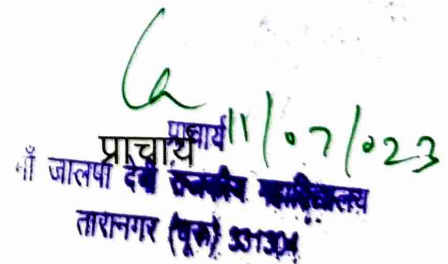 प्राचार्य 11/07/023
प्राचार्य
माँ जालपा देवी राजकीय महाविद्यालय
तारानगर (चूरू) 331304